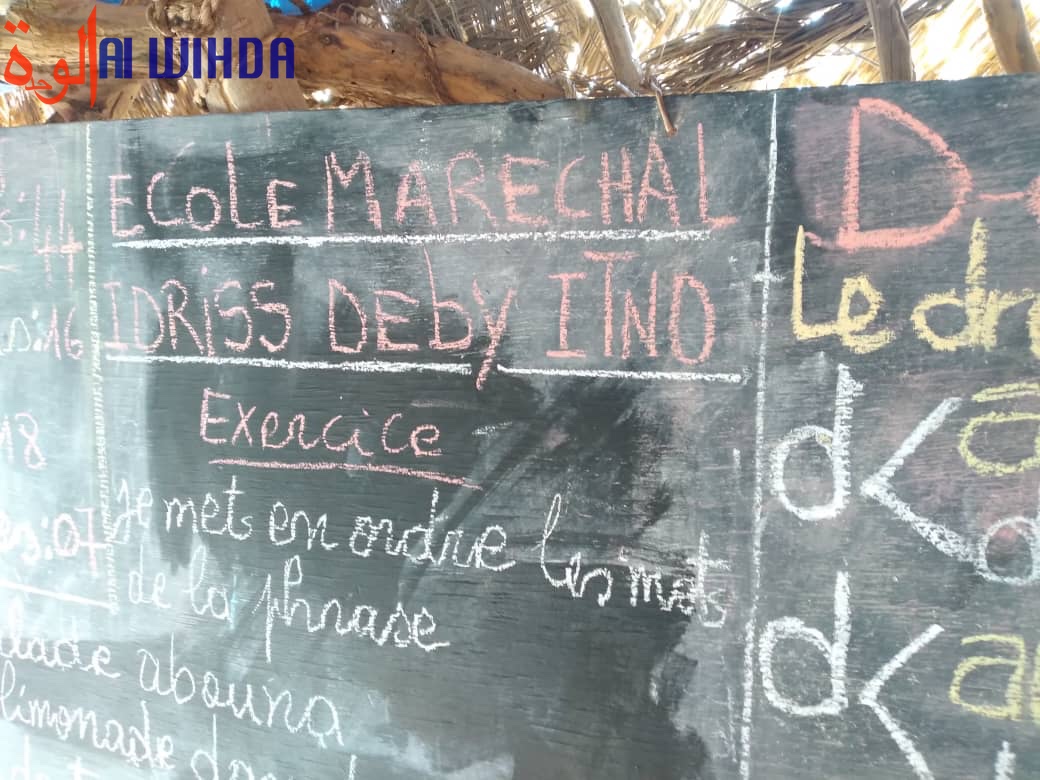 الوحدة AL WIHDA
:44
:16
18
:07
ECOLE MARECHAL
IDRISS DEBY ITNO
Exercice
Je met en ordre les mots
de la phrase
lade abouna
limonade
D-
Le dr
d < a
d < a